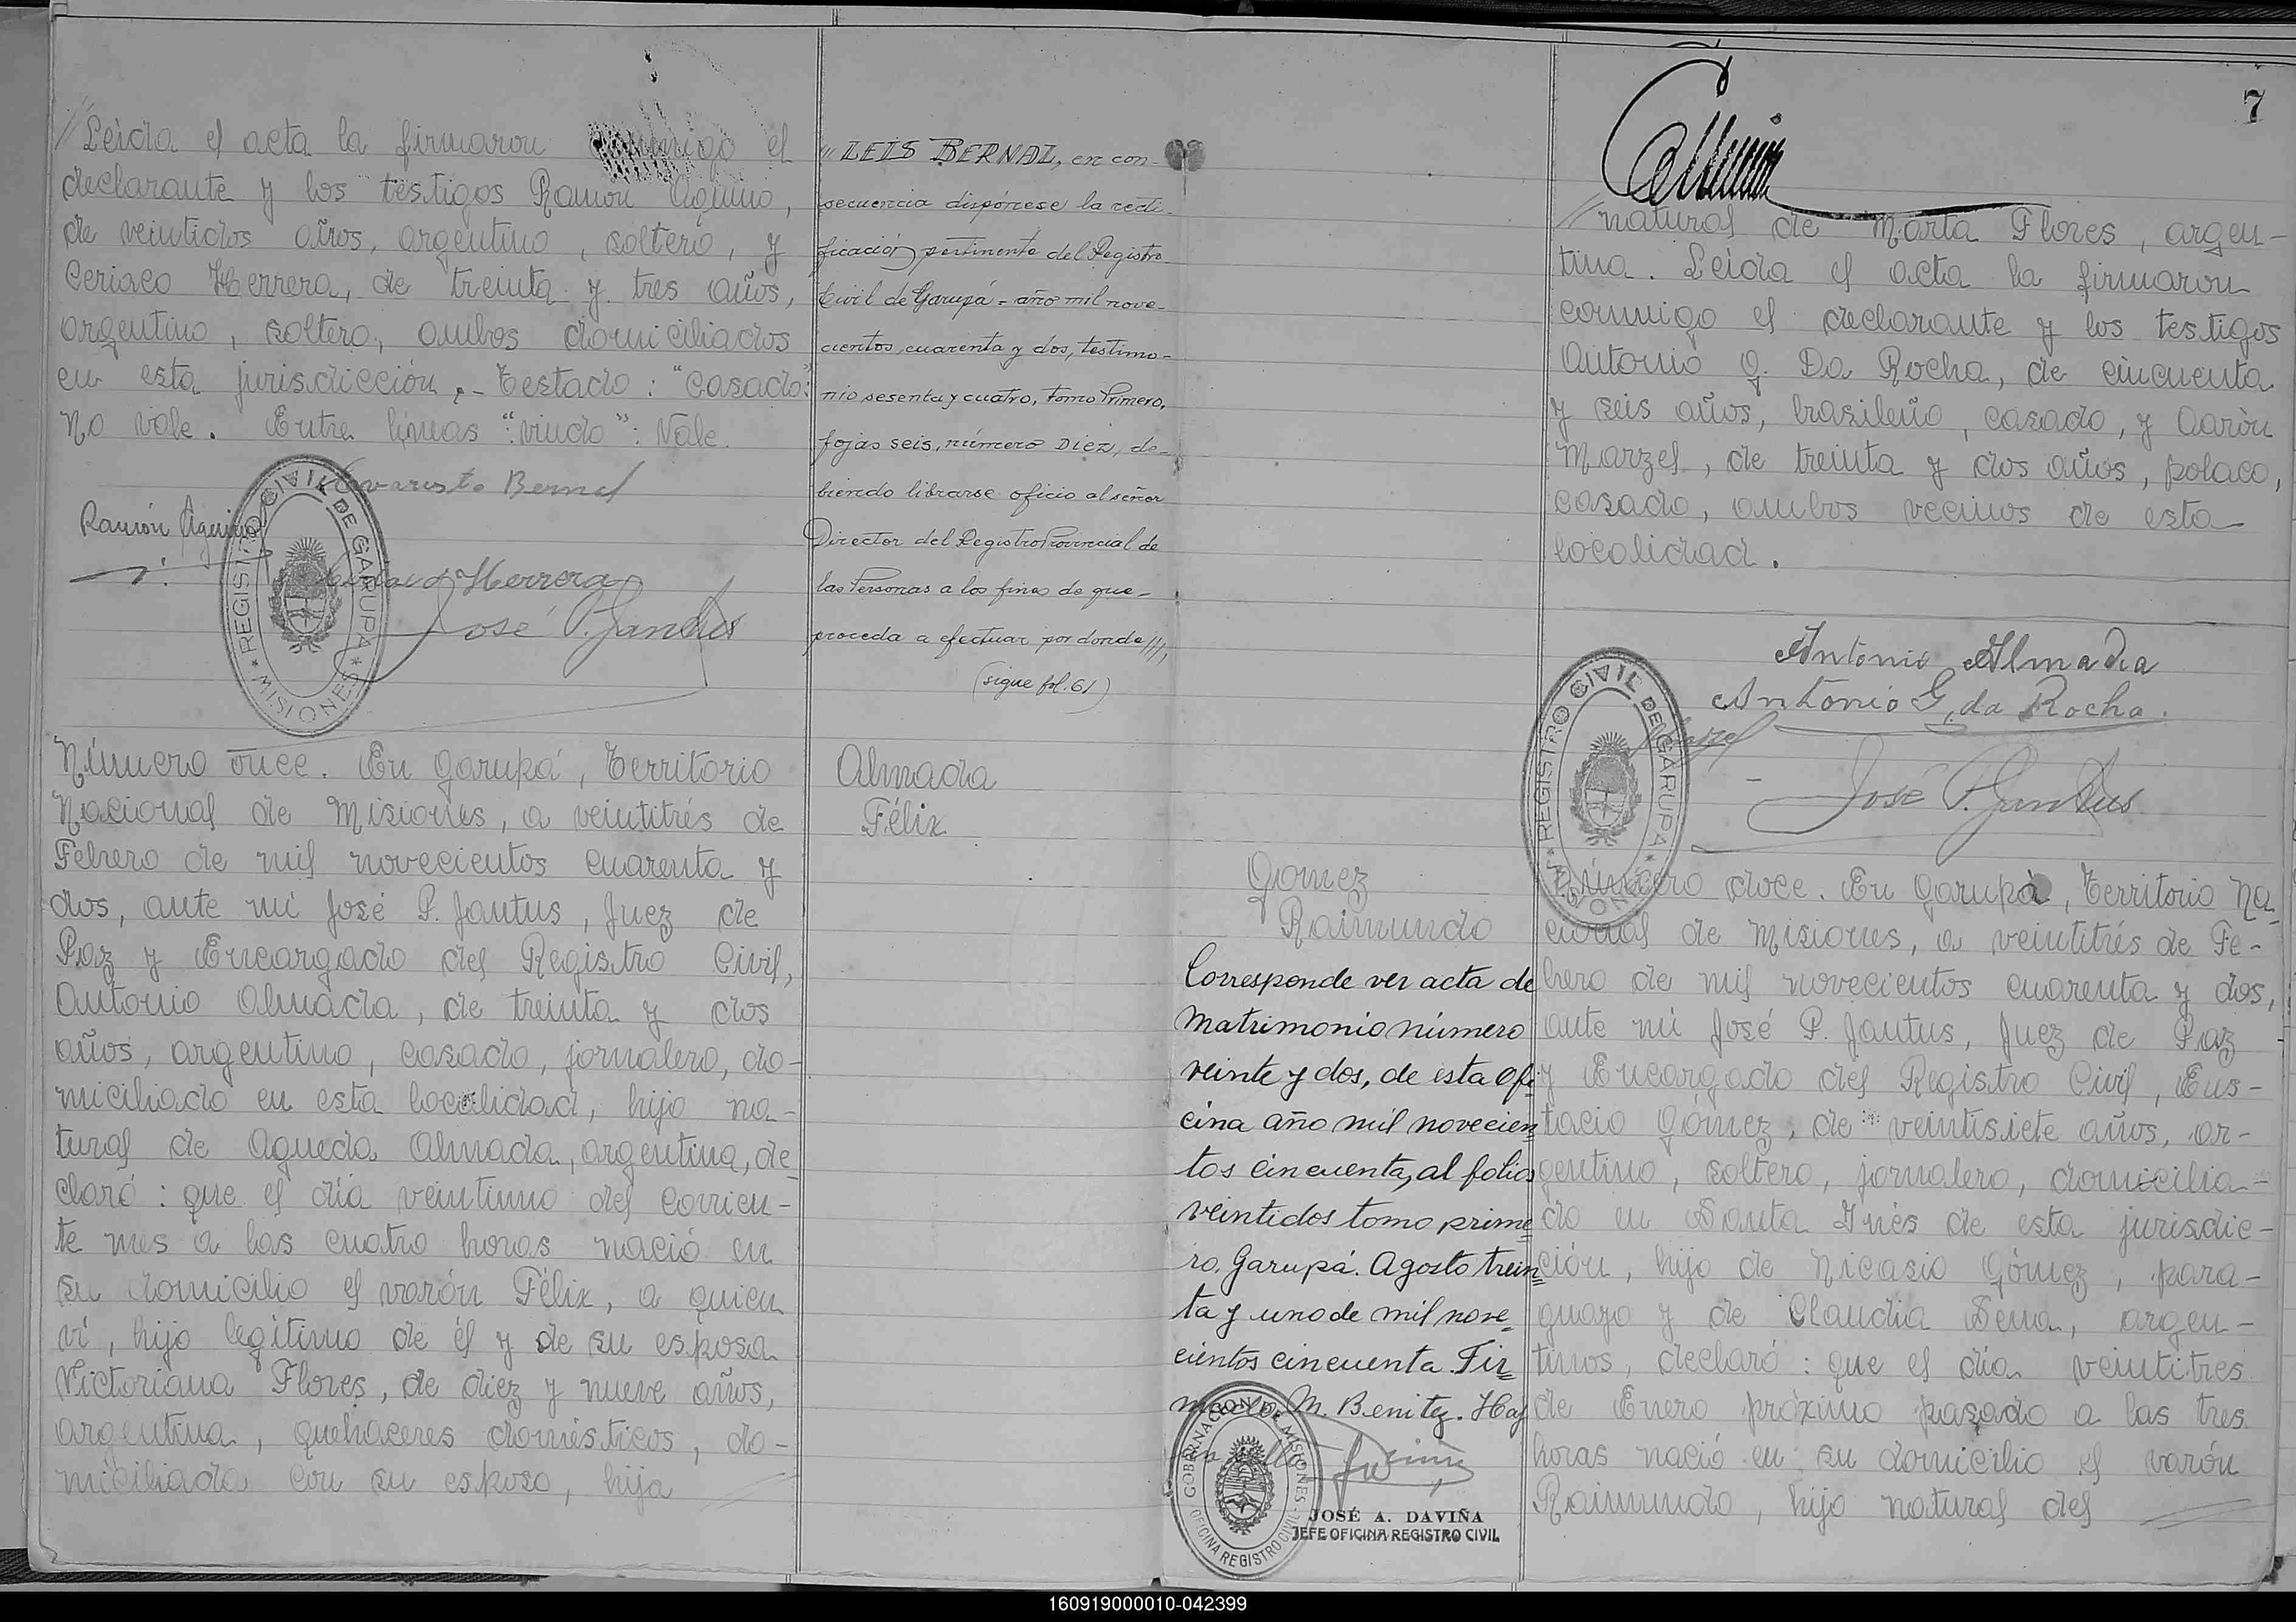 // Leida el acta la firmaron conmigo el
declarante y los testigos Ramón Aquino,
de veintidos años, argentino, soltero, y
Ceriaco Herrera, de treinta y tres años,
argentino, soltero, ambos domiciliados
en esta jurisdicción.- Testado: "casado":
no vale. Entre lineas ":viudo": Vale.
Evaristo Bernal
Ramón Aquino
Herrera
José P. Jantus
REGISTRO CIVIL DE GARUPA
* MISIONES *
Número once. En Garupá, Territorio
Nacional de Misiones, a veintitrés de
Febrero de mil novecientos cuarenta y
dos, ante mi José P. Jantus, Juez de
Paz y Encargado del Registro Civil,
Antonio Almada, de treinta y dos
años, argentino, casado, jornalero, do-
miciliado en esta localidad, hijo na-
tural de Agueda Almada, argentina, de
claró: que el día veintiuno del corrien-
te mes a las cuatro horas nació en
su domicilio el varón Félix, a quien
ví, hijo legítimo de él y de su esposa
Victoriana Flores, de diez y nueve años,
argentina, quehaceres domésticos, do-
miciliada con su esposo, hija
// LEIS BERNAL, en con-
secuencia dispónese la recti-
ficación pertinente del Registro
Civil de Garupá - año mil nove-
cientos cuarenta y dos, testimo-
nio sesenta y cuatro, tomo Primero,
fojas seis, número Diez, de-
biendo librarse oficio al señor
Director del Registro Provincial de
las Personas a los fines de que-
proceda a efectuar por donde ///,
(sigue fol. 61)
Almada
Félix
Gomez
Raimundo
Corresponde ver acta de
Matrimonio número
veinte y dos, de esta Ofi
cina año mil novecien
tos cincuenta, al folios
veintidos tomo prime
ro. Garupá. Agosto trein
ta y uno de mil nove
cientos cincuenta. Fir
mado. M. Benitez. Hay
un sello
GOBERNACION DE MISIONES
OFICINA REGISTRO CIVIL
JOSÉ A. DAVIÑA
JEFE OFICINA REGISTRO CIVIL
7
// natural de Marta Flores, argen-
tina. Leida el acta la firmaron
conmigo el declarante y los testigos
Antonio G. Da Rocha, de cincuenta
y seis años, brasileño, casado, y Aarón
Marzel, de treinta y dos años, polaco,
casado, ambos vecinos de esta
localidad.
Antonio Almada
Antonio G. da Rocha.
Marzel
José P. Jantus
REGISTRO CIVIL DE GARUPA
Número doce. En Garupá, Territorio Na
cional de Misiones, a veintitrés de Fe-
brero de mil novecientos cuarenta y dos,
ante mi José P. Jantus, Juez de Paz
y Encargado del Registro Civil, Eus-
tacio Gómez, de veintisiete años, ar-
gentino, soltero, jornalero, domicilia-
do en Santa Inés de esta jurisdic-
ción, hijo de Nicasio Gómez, para-
guayo y de Claudia Sena, argen-
tinos, declaró: que el día veintitres
de Enero próximo pasado a las tres
horas nació en su domicilio el varón
Raimundo, hijo natural del
160919000010-042399